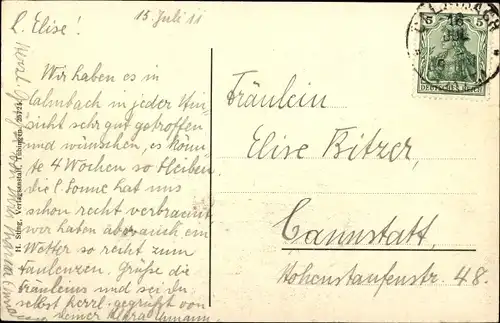 15. Juli 11
L. Elise!
Wir haben es in
Calmbach in jeder Hin-
sicht sehr gut getroffen
und wünschen, es könn-
te 4 Wochen so bleiben
die l. Sonne hat uns
schon recht verbrannt
wir haben aber auch ein
Wetter so recht zum
Faulenzen. Grüße die
Fräuleins und sei du
selbst herzl. gegrüßt von
deiner Klara
H. Sting, Verlagsanstalt, Tübingen.
CALMBACH
16
JUL
5 5
DEUTSCHES REICH
Fräulein
Elise Bitzer,
Cannstatt,
Hohenstaufenstr. 48.